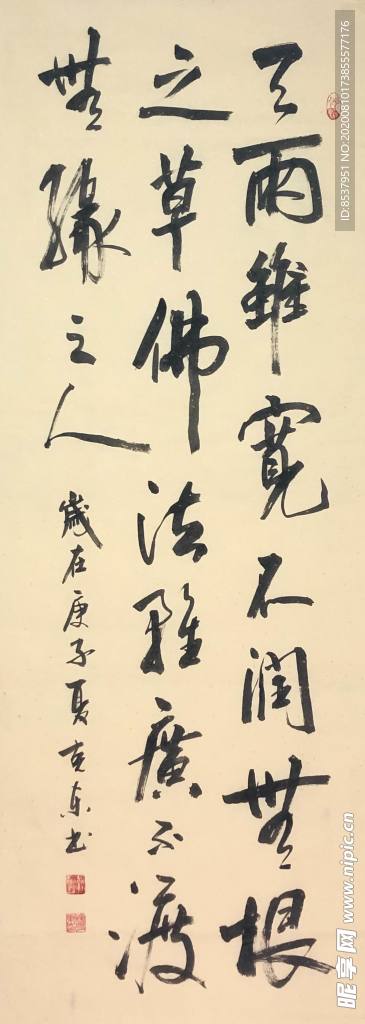 天雨雖寬不潤無根
之草佛法雖廣不渡
無緣之人
歲在庚子夏克東书
ID:8537951 NO:20200810173855577176
昵享网 www.nipic.cn